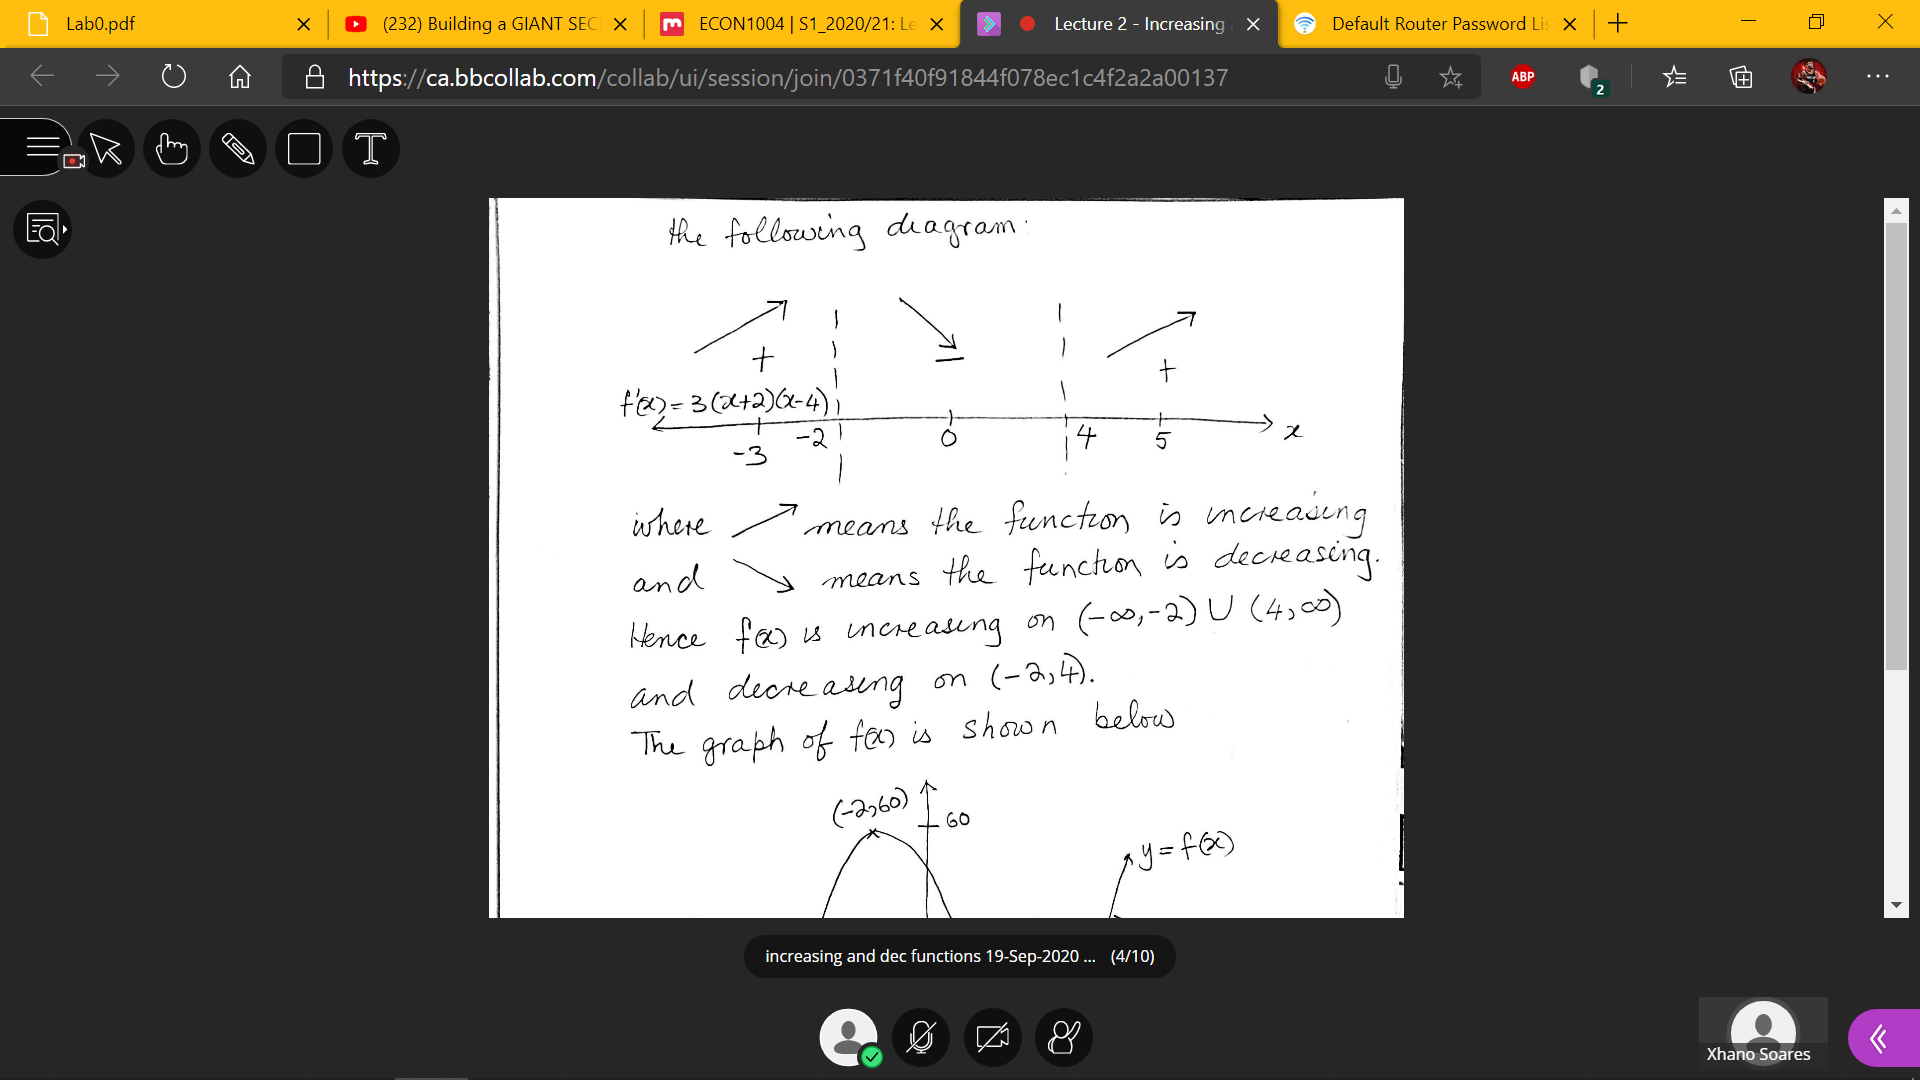 Lab0.pdf
(232) Building a GIANT SEC
ECON1004 | S1_2020/21: Le
Lecture 2 - Increasing
Default Router Password Lis
https://ca.bbcollab.com/collab/ui/session/join/0371f40f91844f078ec1c4f2a2a00137
ABP
2
T
the following diagram:
+ − +
f'(x) = 3(x+2)(x-4)
-3 -2 0 4 5 x
where ↗ means the function is increasing
and ↘ means the function is decreasing.
Hence f(x) is increasing on (-∞,-2) ∪ (4,∞)
and decreasing on (-2,4).
The graph of f(x) is shown below
(-2,60) 60
y = f(x)
increasing and dec functions 19-Sep-2020 ... (4/10)
Xhano Soares